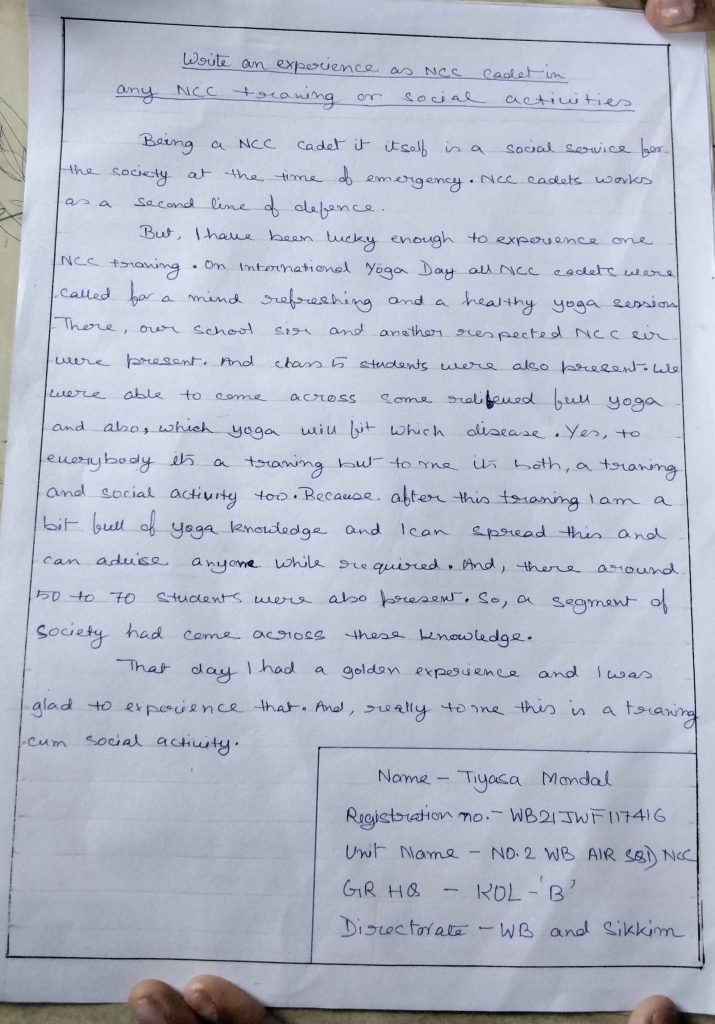 Write an experience as NCC cadet in
any NCC traning or social activities
Being a NCC cadet it itself is a social service for
the society at the time of emergency. NCC cadets works
as a second line of defence.
But, I have been lucky enough to experience one
NCC traning. On International Yoga Day all NCC cadets were
called for a mind refreshing and a healthy yoga session
There, our school sir and another respected NCC sir
were present. And class 5 students were also present. We
were able to come across some full yoga
and also, which yoga will fit which disease. Yes, to
everybody its a traning but to me its both, a traning
and social activity too. Because after this traning I am a
bit full of yoga knowledge and I can spread this and
can advise anyone while required. And, there around
50 to 70 students were also present. So, a segment of
society had come across these knowledge.
That day I had a golden experience and I was
glad to experience that. And, really to me this is a traning
cum social activity.
Name - Tiyasa Mondal
Registration no. - WB21JWF117416
Unit Name - NO. 2 WB AIR SQD NCC
GR HQ - KOL - 'B'
Directorate - WB and Sikkim